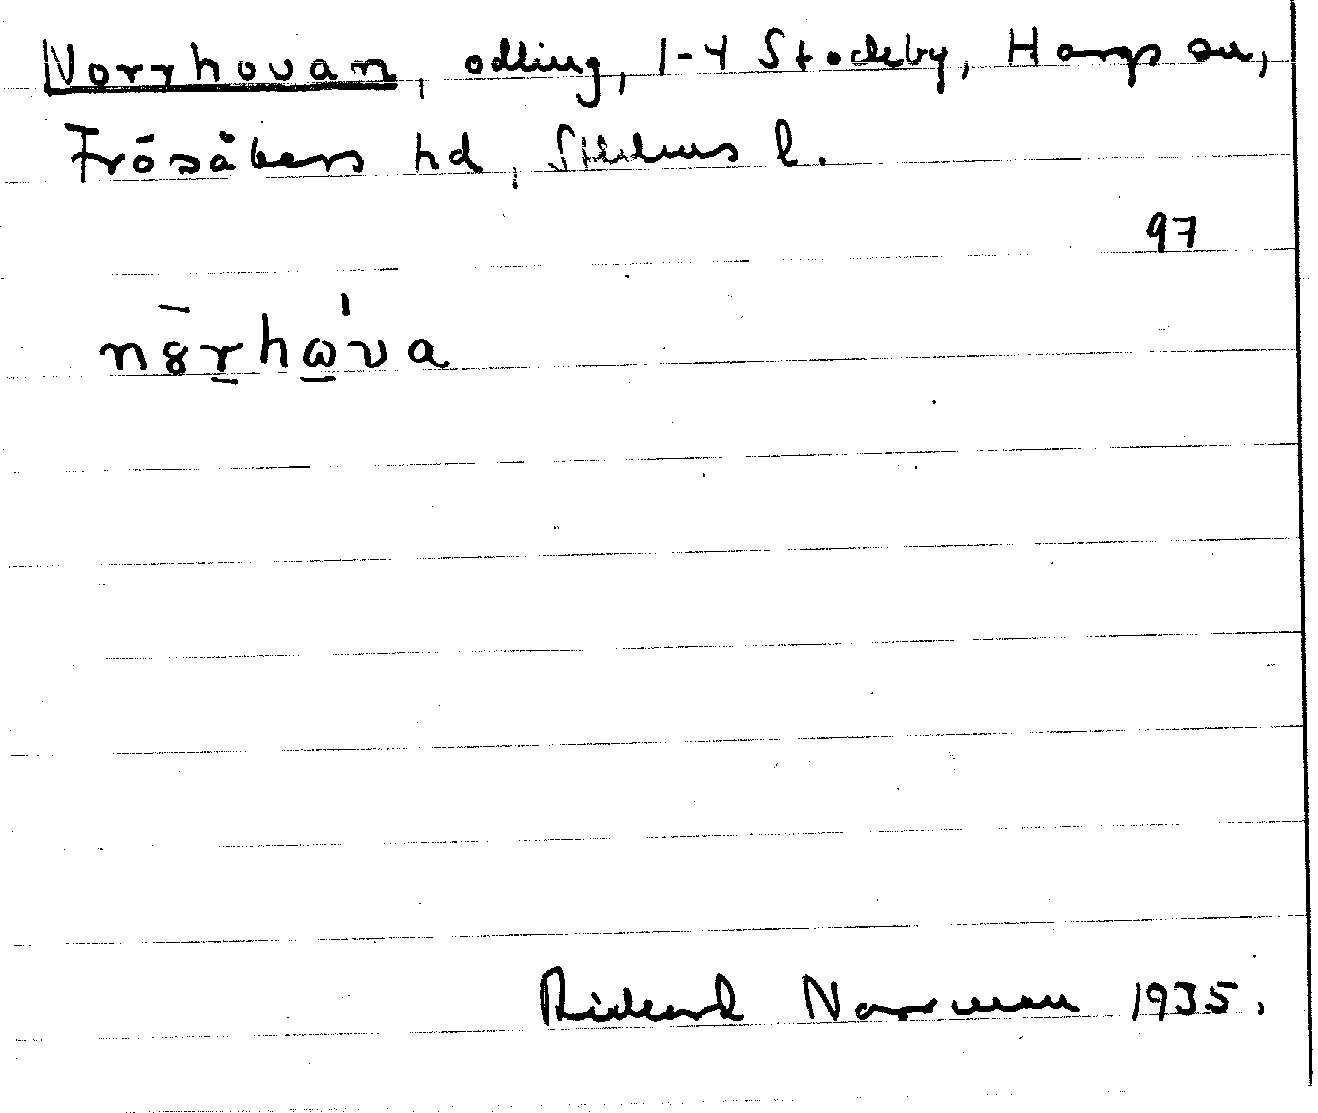 Norrhovan, odling, 1-4 Stockby, Hargs sn,
Frösåkers hd, Sthlms l.
97
n8rhω̱va
Rickard Norrman 1935.